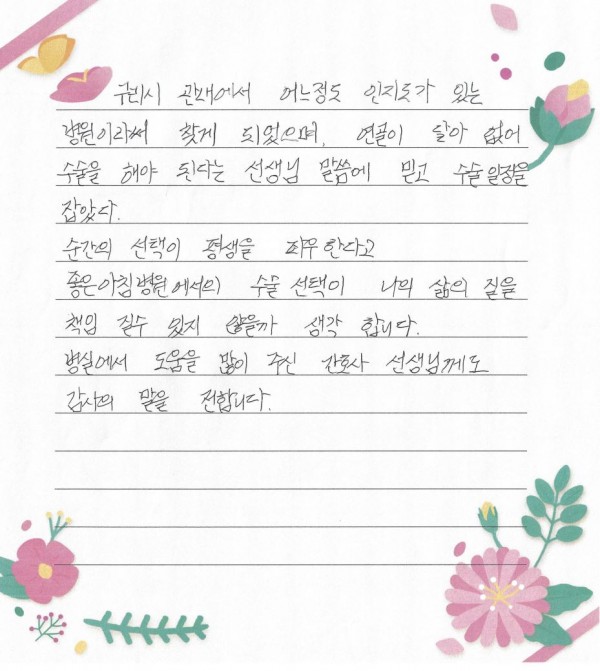 구리시 관내에서 어느정도 인지도가 있는
병원이라써 찾게 되었으며, 연골이 닳아 없어
수술을 해야 된다는 선생님 말씀에 믿고 수술 일정을
잡았다.
순간의 선택이 평생을 좌우 한다고
좋은아침병원에서의 수술 선택이 나의 삶의 질을
책임 질수 있지 않을까 생각 합니다.
병실에서 도움을 많이 주신 간호사 선생님께도
감사의 말을 전합니다.